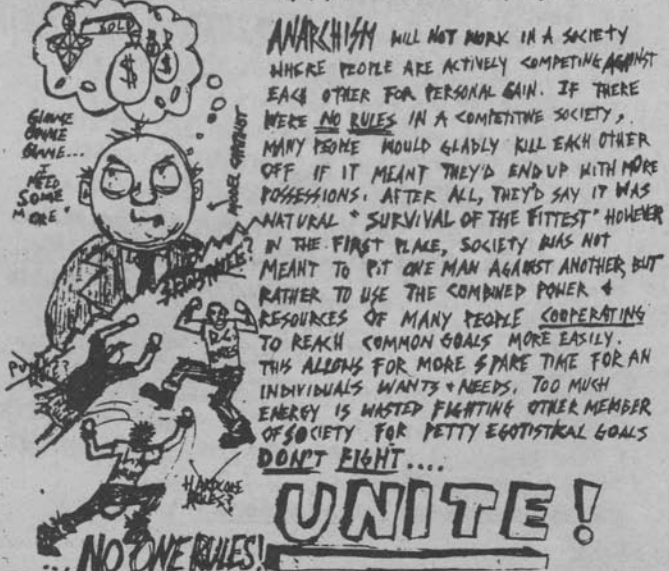 GOLD
$
$
GIMME
GIMME
GIMME...
I
NEED
SOME
MORE
MODEL CAPITALIST
ANARCHISM WILL NOT WORK IN A SOCIETY
WHERE PEOPLE ARE ACTIVELY COMPETING AGAINST
EACH OTHER FOR PERSONAL GAIN. IF THERE
WERE NO RULES IN A COMPETITIVE SOCIETY,
MANY PEOPLE WOULD GLADLY KILL EACH OTHER
OFF IF IT MEANT THEY'D END UP WITH MORE
POSSESSIONS. AFTER ALL, THEY'D SAY IT WAS
NATURAL "SURVIVAL OF THE FITTEST" HOWEVER
IN THE FIRST PLACE, SOCIETY WAS NOT
MEANT TO PIT ONE MAN AGAINST ANOTHER, BUT
RATHER TO USE THE COMBINED POWER &
RESOURCES OF MANY PEOPLE COOPERATING
TO REACH COMMON GOALS MORE EASILY.
THIS ALLOWS FOR MORE SPARE TIME FOR AN
INDIVIDUALS WANTS + NEEDS. TOO MUCH
ENERGY IS WASTED FIGHTING OTHER MEMBER
OF SOCIETY FOR PETTY EGOTISTICAL GOALS
DON'T FIGHT....
UNITE!
HARDCORE
RULES?
... NO ONE RULES!